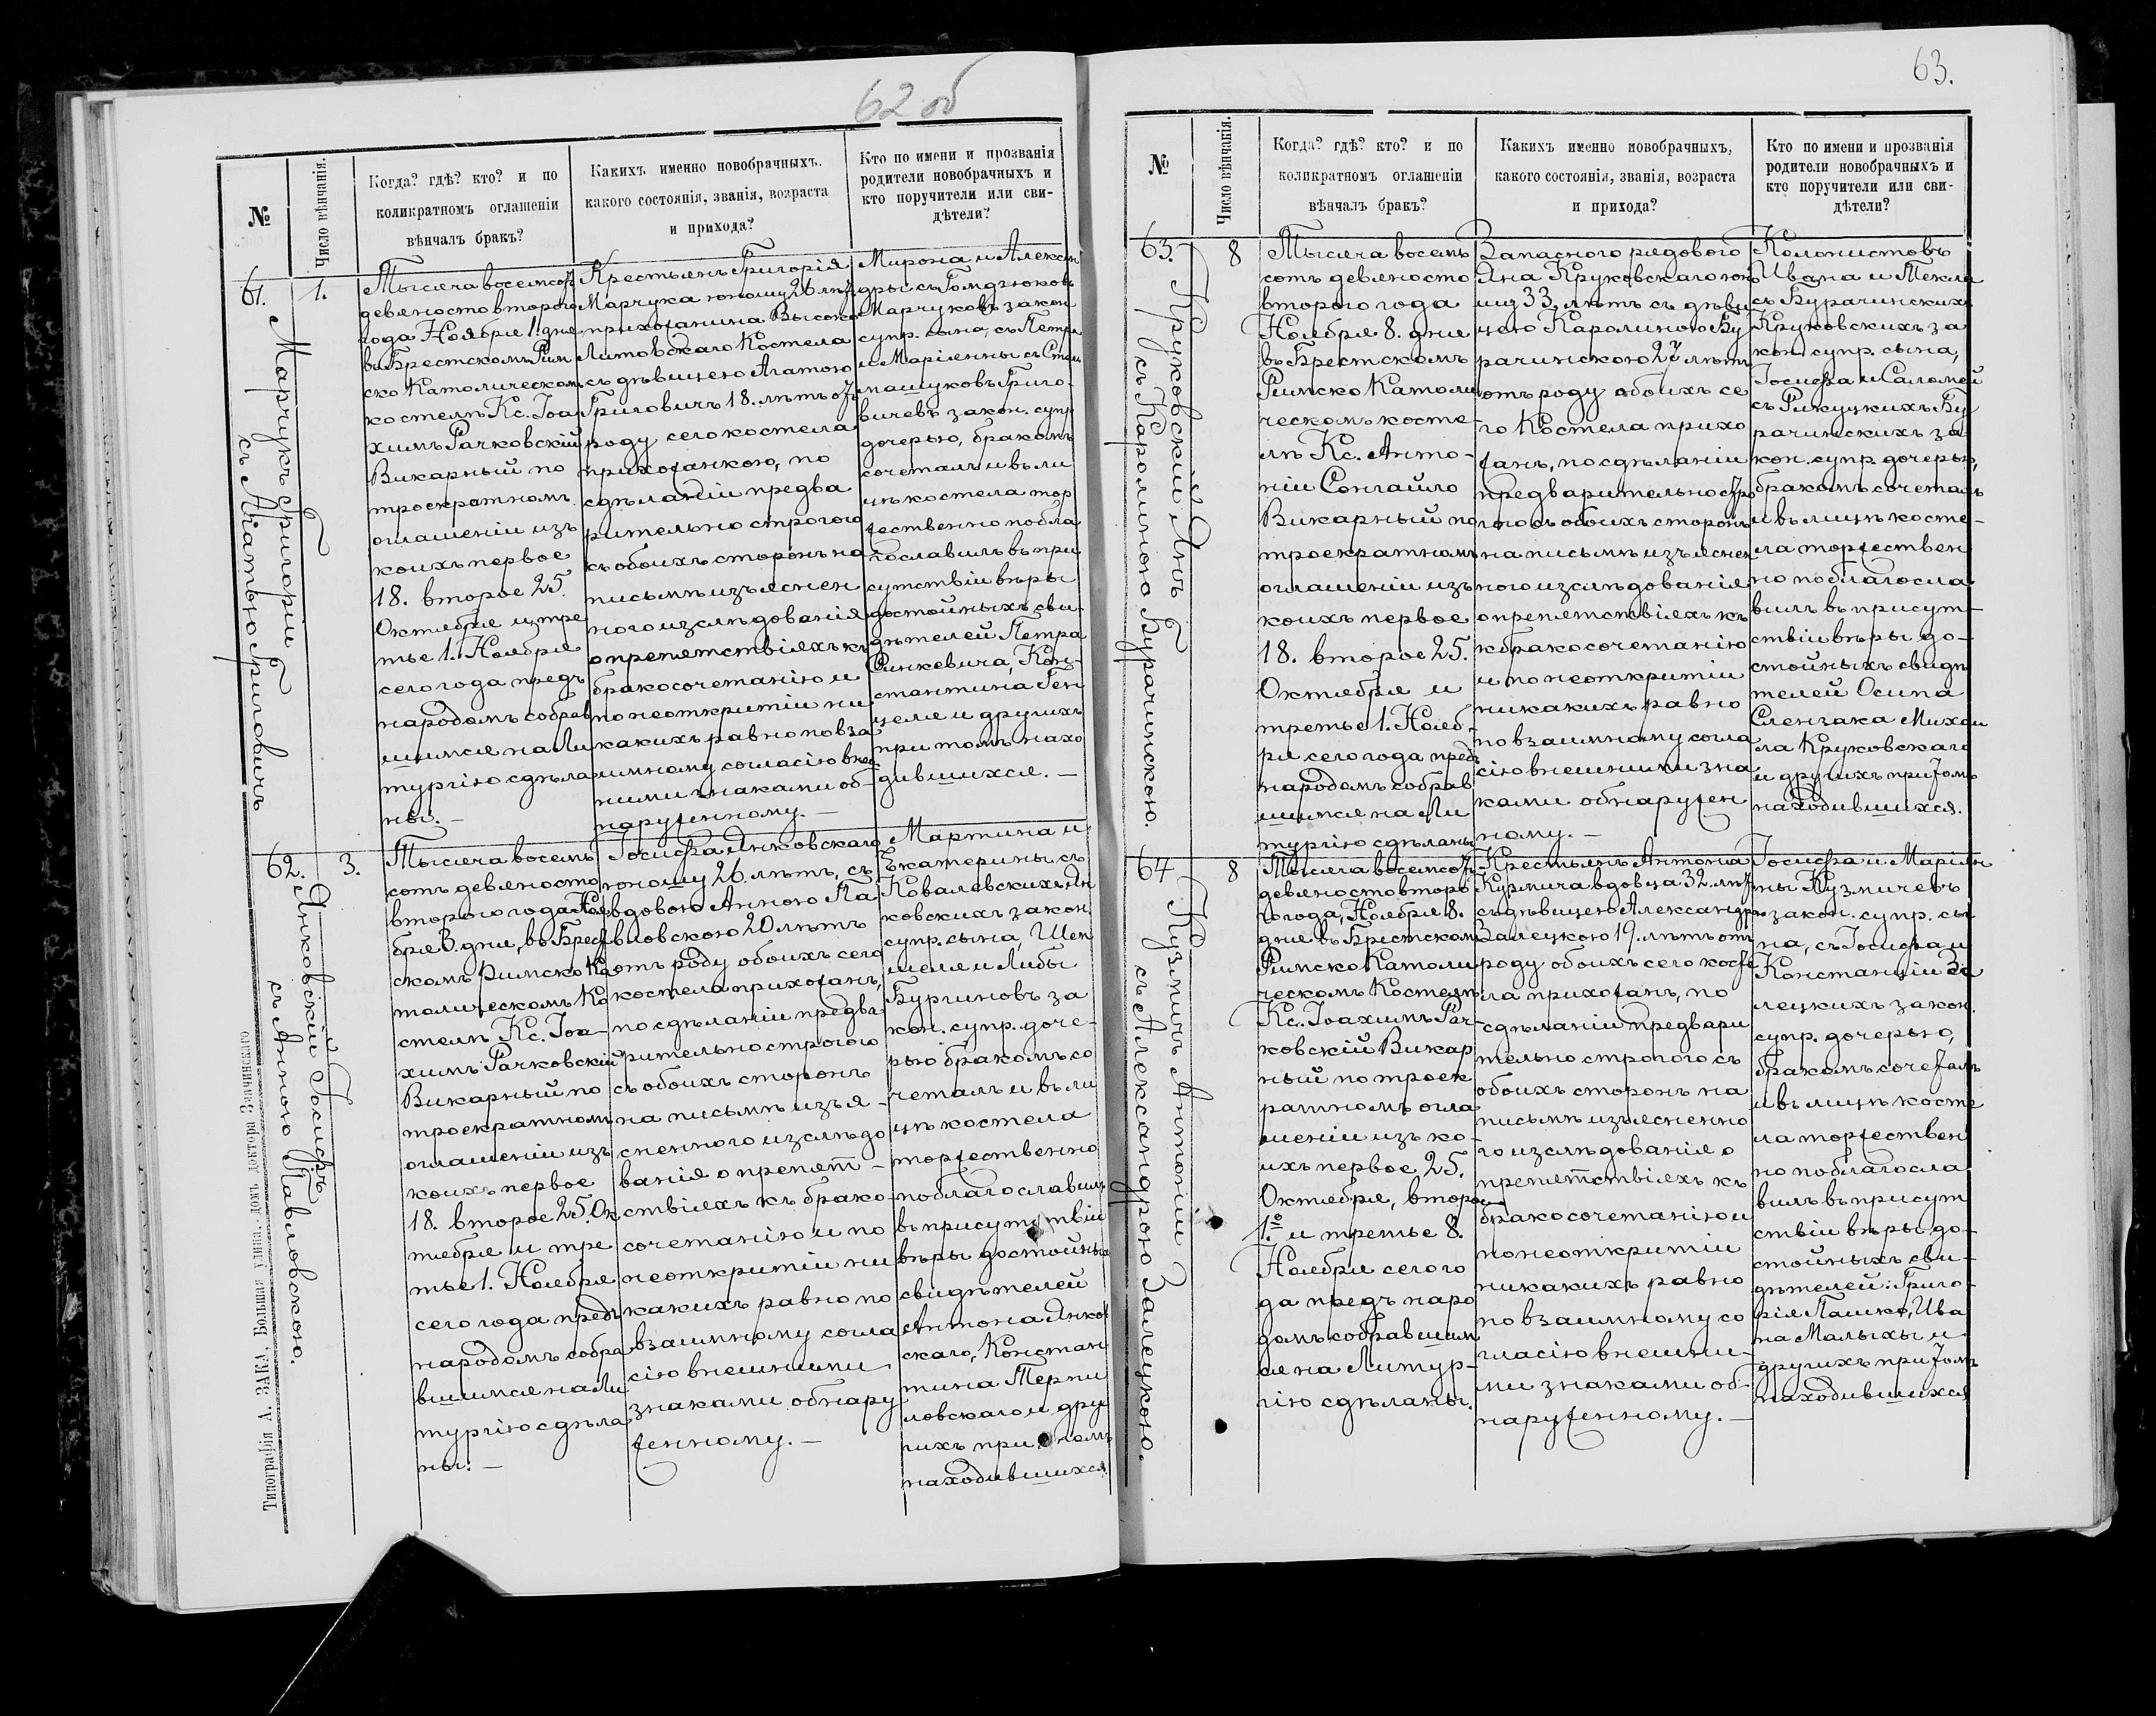 62 об
№
Число вѣнчанія.
Когда? гдѣ? кто? и по
коликратномъ оглашеніи
вѣнчалъ бракъ?
Какихъ именно новобрачныхъ.
какого состоянія, званія, возраста
и прихода?
Кто по имени и прозванія
родители новобрачныхъ и
кто поручители или сви-
дѣтели?
61.
Марчукъ Григорій
съ Агатою Григовичъ
1.
Тысяча восемсот
девяносто второго
года Ноября 1. дня
въ Брестскомъ Рим
ско Католическом
костелѣ Кс. Іоа
химъ Рачковскій
Викарный по
троекратномъ
оглашеніи изъ
коихъ первое
18. второе 25.
Октября и тре
тье 1. Ноября
сего года предъ
народомъ собрав
шимся на Ли
тургію сдѣла
ны. —
Крестьянъ Григорія
Марчука юношу 26 лѣт
прихожанина Высоко
Литовскаго Костела
съ дѣвицею Агатою
Григовичъ 18. лѣтъ от
роду сего костела
прихожанкою, по
сдѣланіи предва
рительно строгого
съ обоихъ сторонъ на
письмѣ изъяснен
ного изслѣдованія
о препятствіяхъ къ
бракосочетанію и
по неоткрытіи ни
какихъ равно по вза
имному согласію внеш
ними знаками об-
наруженному. —
Мирона и Алексан
дры съ Гомдзюковъ
Марчуковъ закон
супр. сына, съ Петра
и Маріянны съ Стел
машуковъ Григо-
вичевъ закон. супр
дочерью, бракомъ
сочеталъ и въ ли
цѣ костела тор
жественно побла
гославилъ въ при
сутствіи вѣры
достойныхъ сви-
дѣтелей Петра
Ринкевича, Кон-
стантина Ген
целя и другихъ
при томъ нахо
дившихся. —
62.
Янковскій Іосифъ
съ Анною Павловскою.
3.
Тысяча восемь
сотъ девяносто
второго года Ноя
бря 3. дня, въ Брест
скомъ Римско Ка
толическомъ Ко
стелѣ Кс. Іоа-
химъ Рачковскій
Викарный по
троекратном
оглашеніи изъ
коихъ первое
18. второе 25. Ок
тября и тре
тье 1. Ноября
сего года предъ
народомъ собра
вшимся на Ли
тургію сдѣла
ны. —
Іосифа Янковскаго
юношу 26. лѣтъ, съ
вдовою Анною Па
вловскою 20 лѣтъ
отъ роду обоихъ сего
костела прихожанъ,
по сдѣланіи предва
рительно строгого
съ обоихъ сторонъ
на письмѣ изъя-
сненного изслѣдо
ванія о препят-
ствіяхъ къ брако-
сочетанію и по
неоткрытіи ни
какихъ равно по
взаимному согла
сію внешними
знаками обнару
женному. —
Мартина и
Екатерины съ
Ковалевскихъ Ян
ковскихъ закон.
супр. сына, Шеп
шеля и Либы
Бургиновъ за
кон. супр. доче-
рью бракомъ со
четалъ и въ ли
цѣ костела
торжественно
поблагославилъ
въ присутствіи
вѣры достойных
свидѣтелей
Антона Янков
скаго, Констан
тина Терпи
ловскаго и дру
гихъ при томъ
находившихся.
Типографія А. ЗАКА, Большая улица, домъ доктора Звачинскаго
63.
№
Число вѣнчанія.
Когда? гдѣ? кто? и по
коликратномъ оглашеніи
вѣнчалъ бракъ?
Какихъ именно новобрачныхъ,
какого состоянія, званія, возраста
и прихода?
Кто по имени и прозванія
родители новобрачныхъ и
кто поручители или сви-
дѣтели?
63.
Круковскій Янъ
съ Каролиною Бурачинскою.
8
Тысяча восемь
сотъ девяносто
второго года
Ноября 8. дня
въ Брестскомъ
Римско Католи
ческомъ косте
лѣ Кс. Анто-
ній Сонгайло
Викарный по
троекратномъ
оглашеніи изъ
коихъ первое
18. второе 25.
Октября и
третье 1. Нояб-
ря сего года предъ
народомъ собрав
шимся на Ли
тургію сдѣланы
Запасного рядового
Яна Круковскаго юно
шу 33. лѣтъ съ дѣви
цею Каролиною Бу
рачинскою 27 лѣтъ
отъ роду обоихъ се
го Костела прихо
жанъ, по сдѣланіи
предварительно стро
гого съ обоихъ сторонъ
на письмѣ изъяснен
ного изслѣдованія
о препятствіяхъ къ
бракосочетанію
и по неоткрытіи
никакихъ равно
по взаимному согла
сію внешними зна
ками обнаружен
ному. —
Колонистовъ
Ивана и Теклы
съ Бурачинских
Круковскихъ за
кон. супр. сына,
Іосифа и Саломей
съ Рикуцкихъ Бу
рачинскихъ за
кон. супр. дочерью,
бракомъ сочеталъ
и въ лицѣ косте-
ла торжествен
но поблагосла
вилъ въ присут-
ствіи вѣры до-
стойныхъ свидѣ
телей Осипа
Слензака Михаи
ла Круковскаго
и другихъ при томъ
находившихся.
64
Кузмичъ Антоній
съ Александрою Залецкою.
8
Тысяча восемсотъ
девяносто второ
го года, Ноября 8.
дня въ Брестском
Римско Католи
ческомъ Костелѣ
Кс. Іоахимъ Рач-
ковскій Викар
ный по троек
ратномъ огла
шеніи изъ ко-
ихъ первое 25.
Октября, второе
1.о и третье 8.
Ноября сего го
да предъ наро
домъ собравшим
ся на Литур-
гію сдѣланы.
Крестьянъ Антона
Кузмича вдовца 32. лѣт
съ дѣвицею Александрою
Залецкою 19. лѣтъ отъ
роду обоихъ сего косте
ла прихожанъ, по
сдѣланіи предвари
тельно строгого съ
обоихъ сторонъ на
письмѣ изъясненно
го изслѣдованія о
препятствіяхъ къ
бракосочетанію и
по неоткрытіи
никакихъ равно
по взаимному со
гласію внешни-
ми знаками об-
наруженному. —
Іосифа и Маріян
ны Кузмичевъ
закон. супр. сы
на, съ Іосифа и
Констанціи За
лецкихъ закон.
супр. дочерью,
бракомъ сочеталъ
и въ лицѣ косте
ла торжествен
но поблагосла
вилъ въ присут
ствіи вѣры до-
стойныхъ сви-
дѣтелей: Григо-
рія Пашко, Ива
на Малыхы и
другихъ при томъ
находившихся